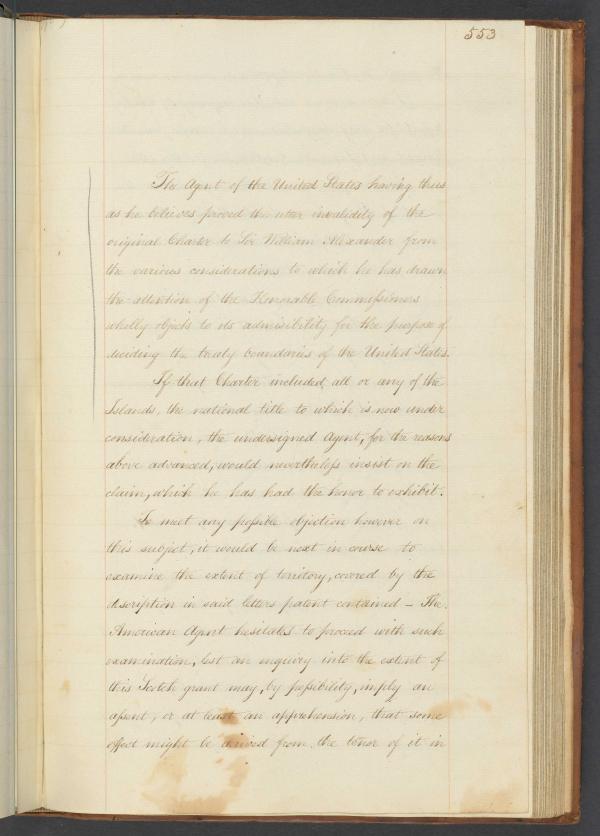 553
The Agent of the United States having thus
as he believes proved the utter invalidity of the
original Charter to Sir William Alexander from
the various considerations to which he has drawn
the attention of the Honorable Commissioners
wholly objects to its admissibility for the purpose of
deciding the treaty boundaries of the United States.
If that Charter included, all or any of the
Islands, the national title to which is now under
consideration, the undersigned Agent, for the reasons
above advanced, would nevertheless insist on the
claim, which he has had the honor to exhibit.
To meet any possible objection however on
this subject, it would be next in course to
examine the extent of territory, covered by the
description in said letters patent contained – The
American Agent hesitates to proceed with such
examination, lest an inquiry into the extent of
this Scotch grant may, by possibility, imply an
assent, or at least an apprehension, that some
effect might be derived from the tenor of it in